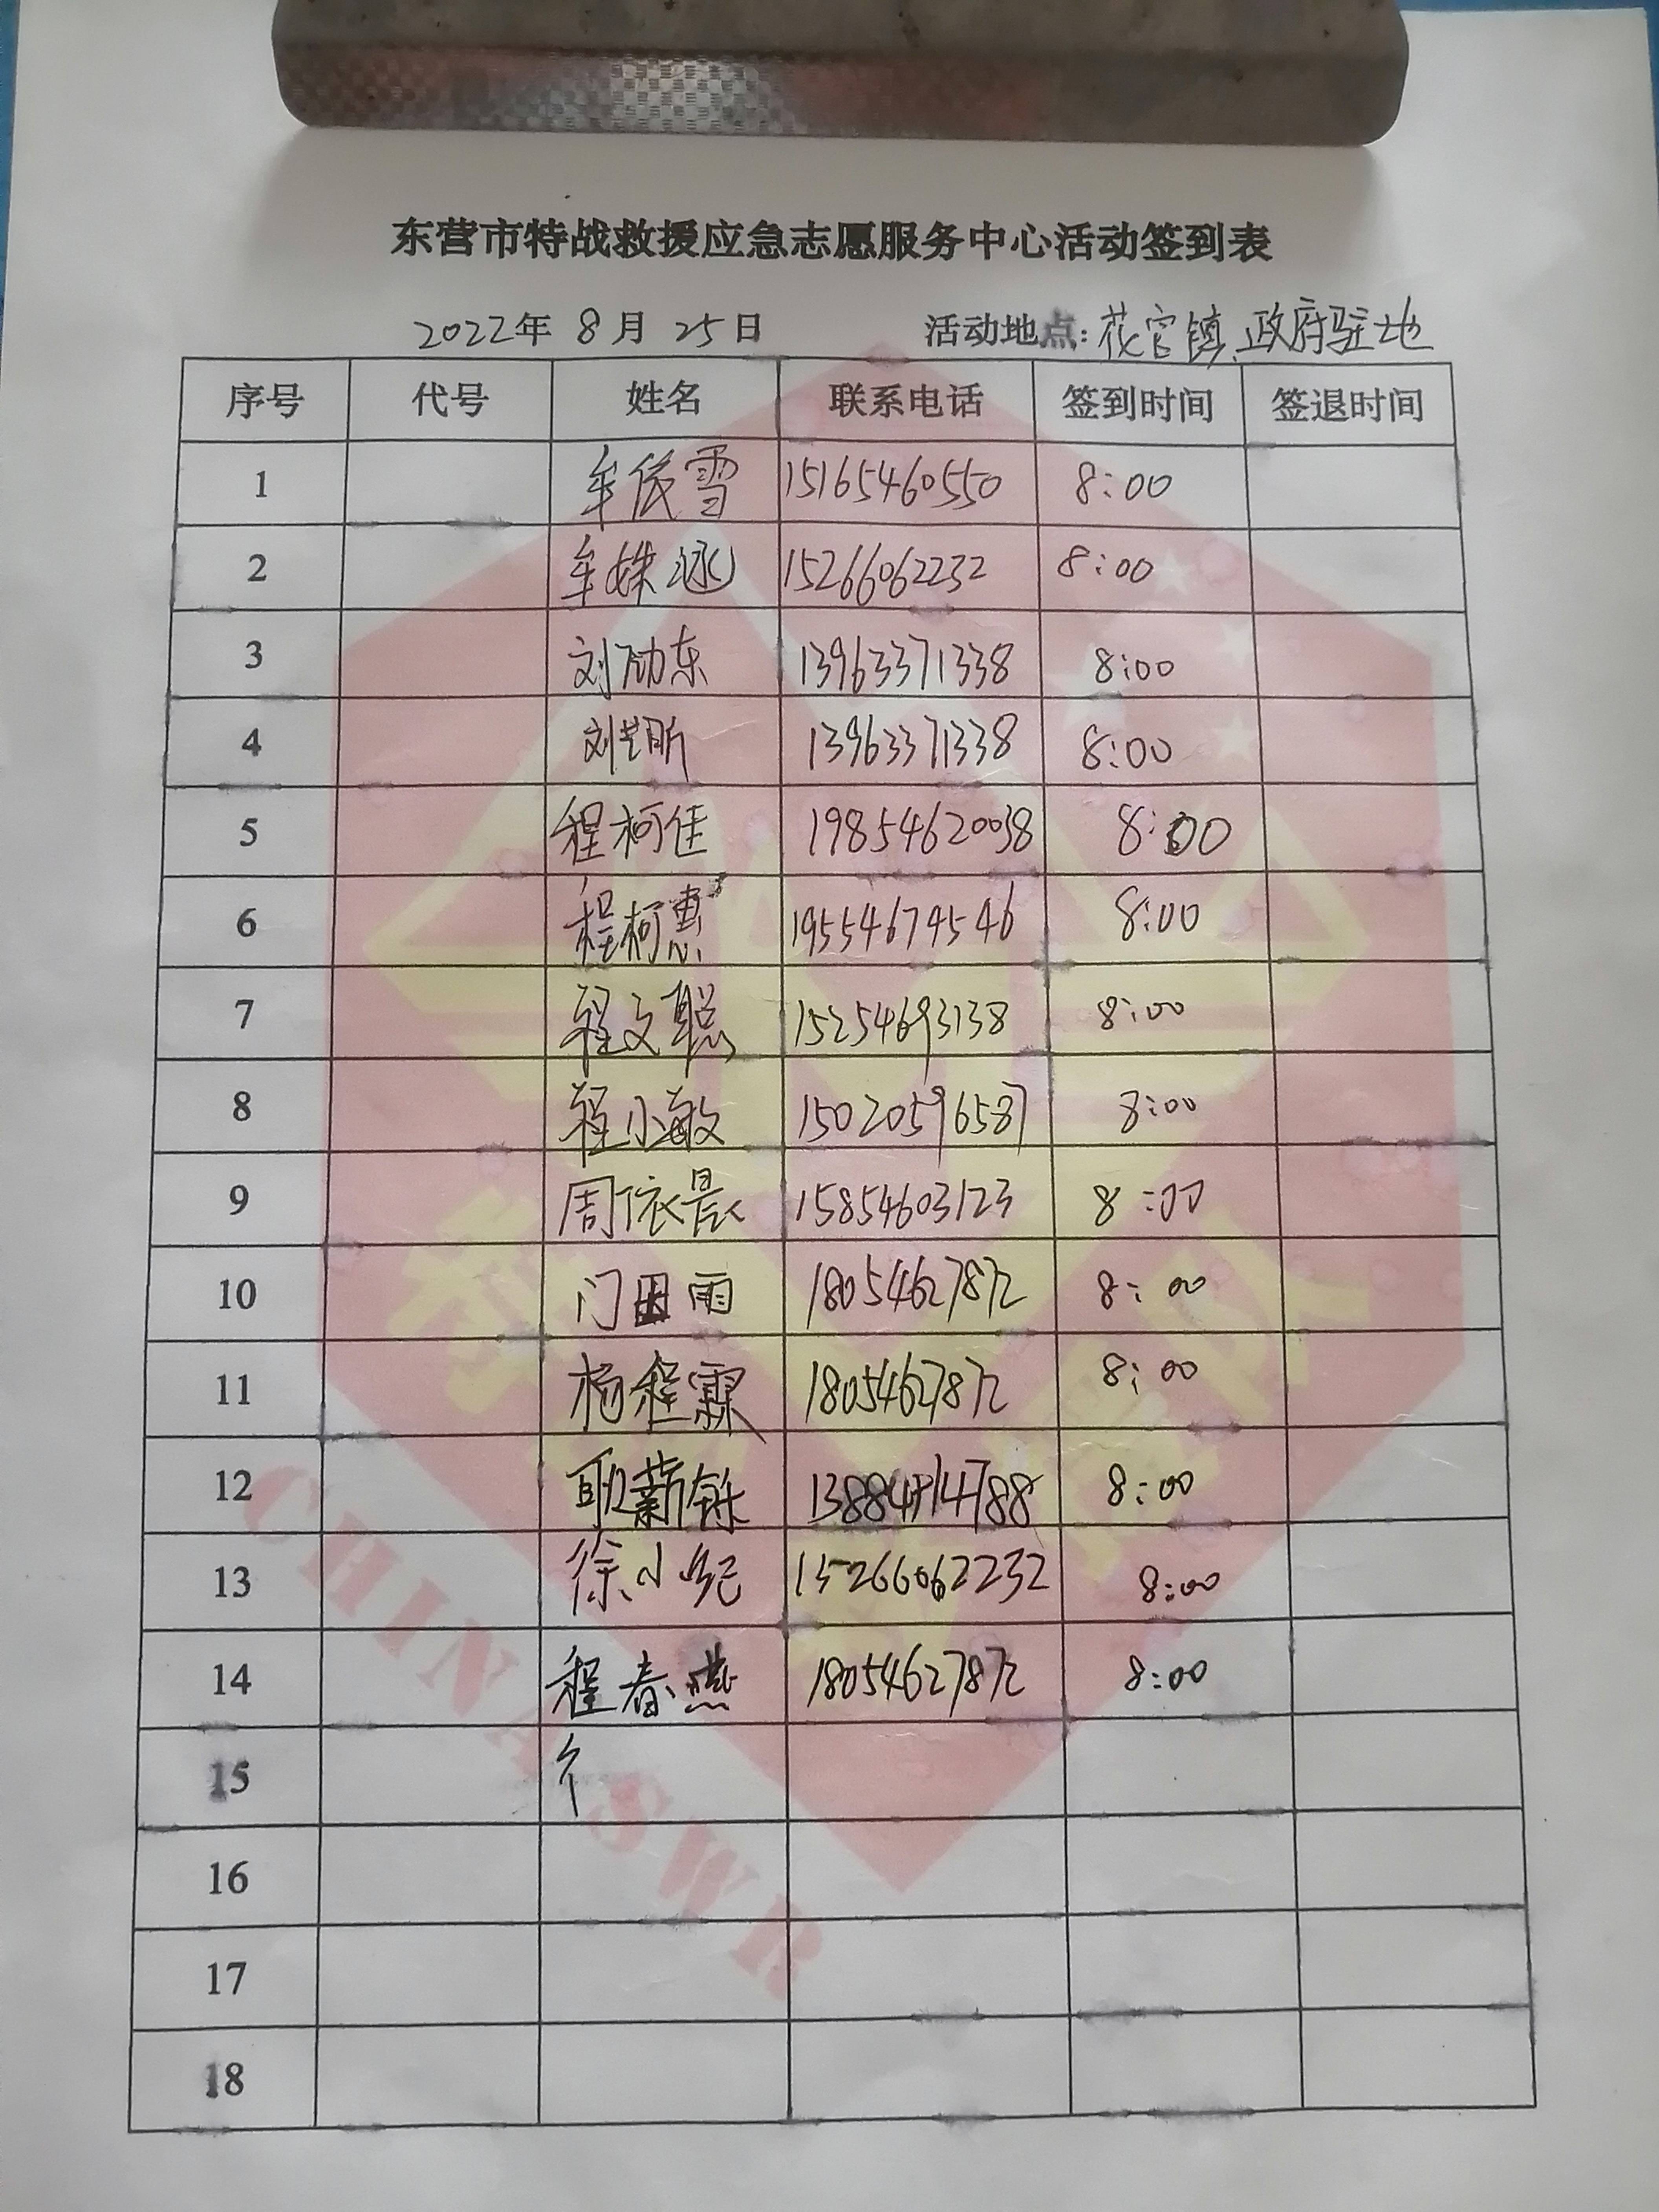 东营市特战救援应急志愿服务中心活动签到表
2022年 8月 25日 活动地点: 花官镇政府驻地
序号 代号 姓名 联系电话 签到时间 签退时间
1 牟依雪 15165460550 8:00
2 牟姝涵 15266062232 8:00
3 刘励东 13963371338 8:00
4 刘芸昕 13963371338 8:00
5 程柯佳 19854620038 8:00
6 程柯惠 19554674546 8:00
7 程文聪 15254693138 8:00
8 程小敏 15020596587 8:00
9 周依晨 15854603123 8:00
10 门田雨 18054627872 8:00
11 杨程霖 18054627872 8:00
12 耿薪铄 8:00
13 徐小妮 15266062232 8:00
14 程春燕 18054627872 8:00
15
16
17
18
CHINA SWR